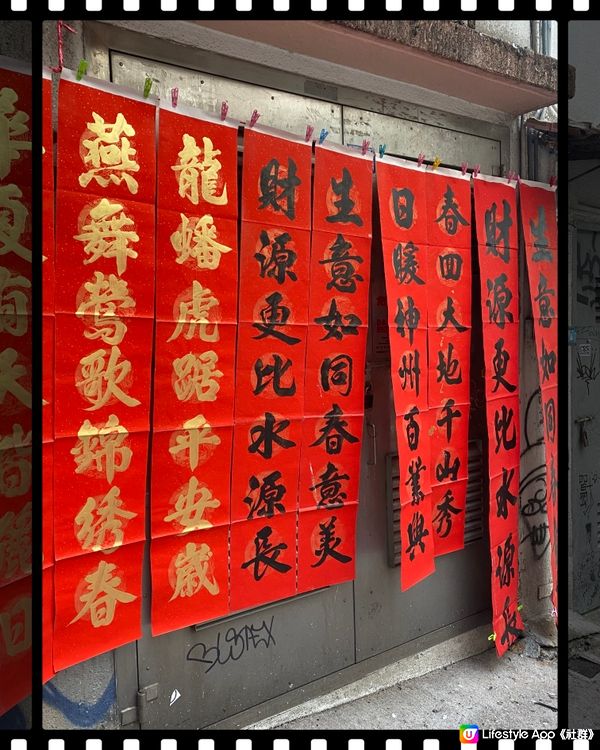 生意如同
財源更比水源長
春回大地千山秀
日暖神州百業興
生意如同春意美
財源更比水源長
龍蟠虎踞平安歲
燕舞鶯歌錦綉春
夏有天皆麗日
Lifestyle App《社群》